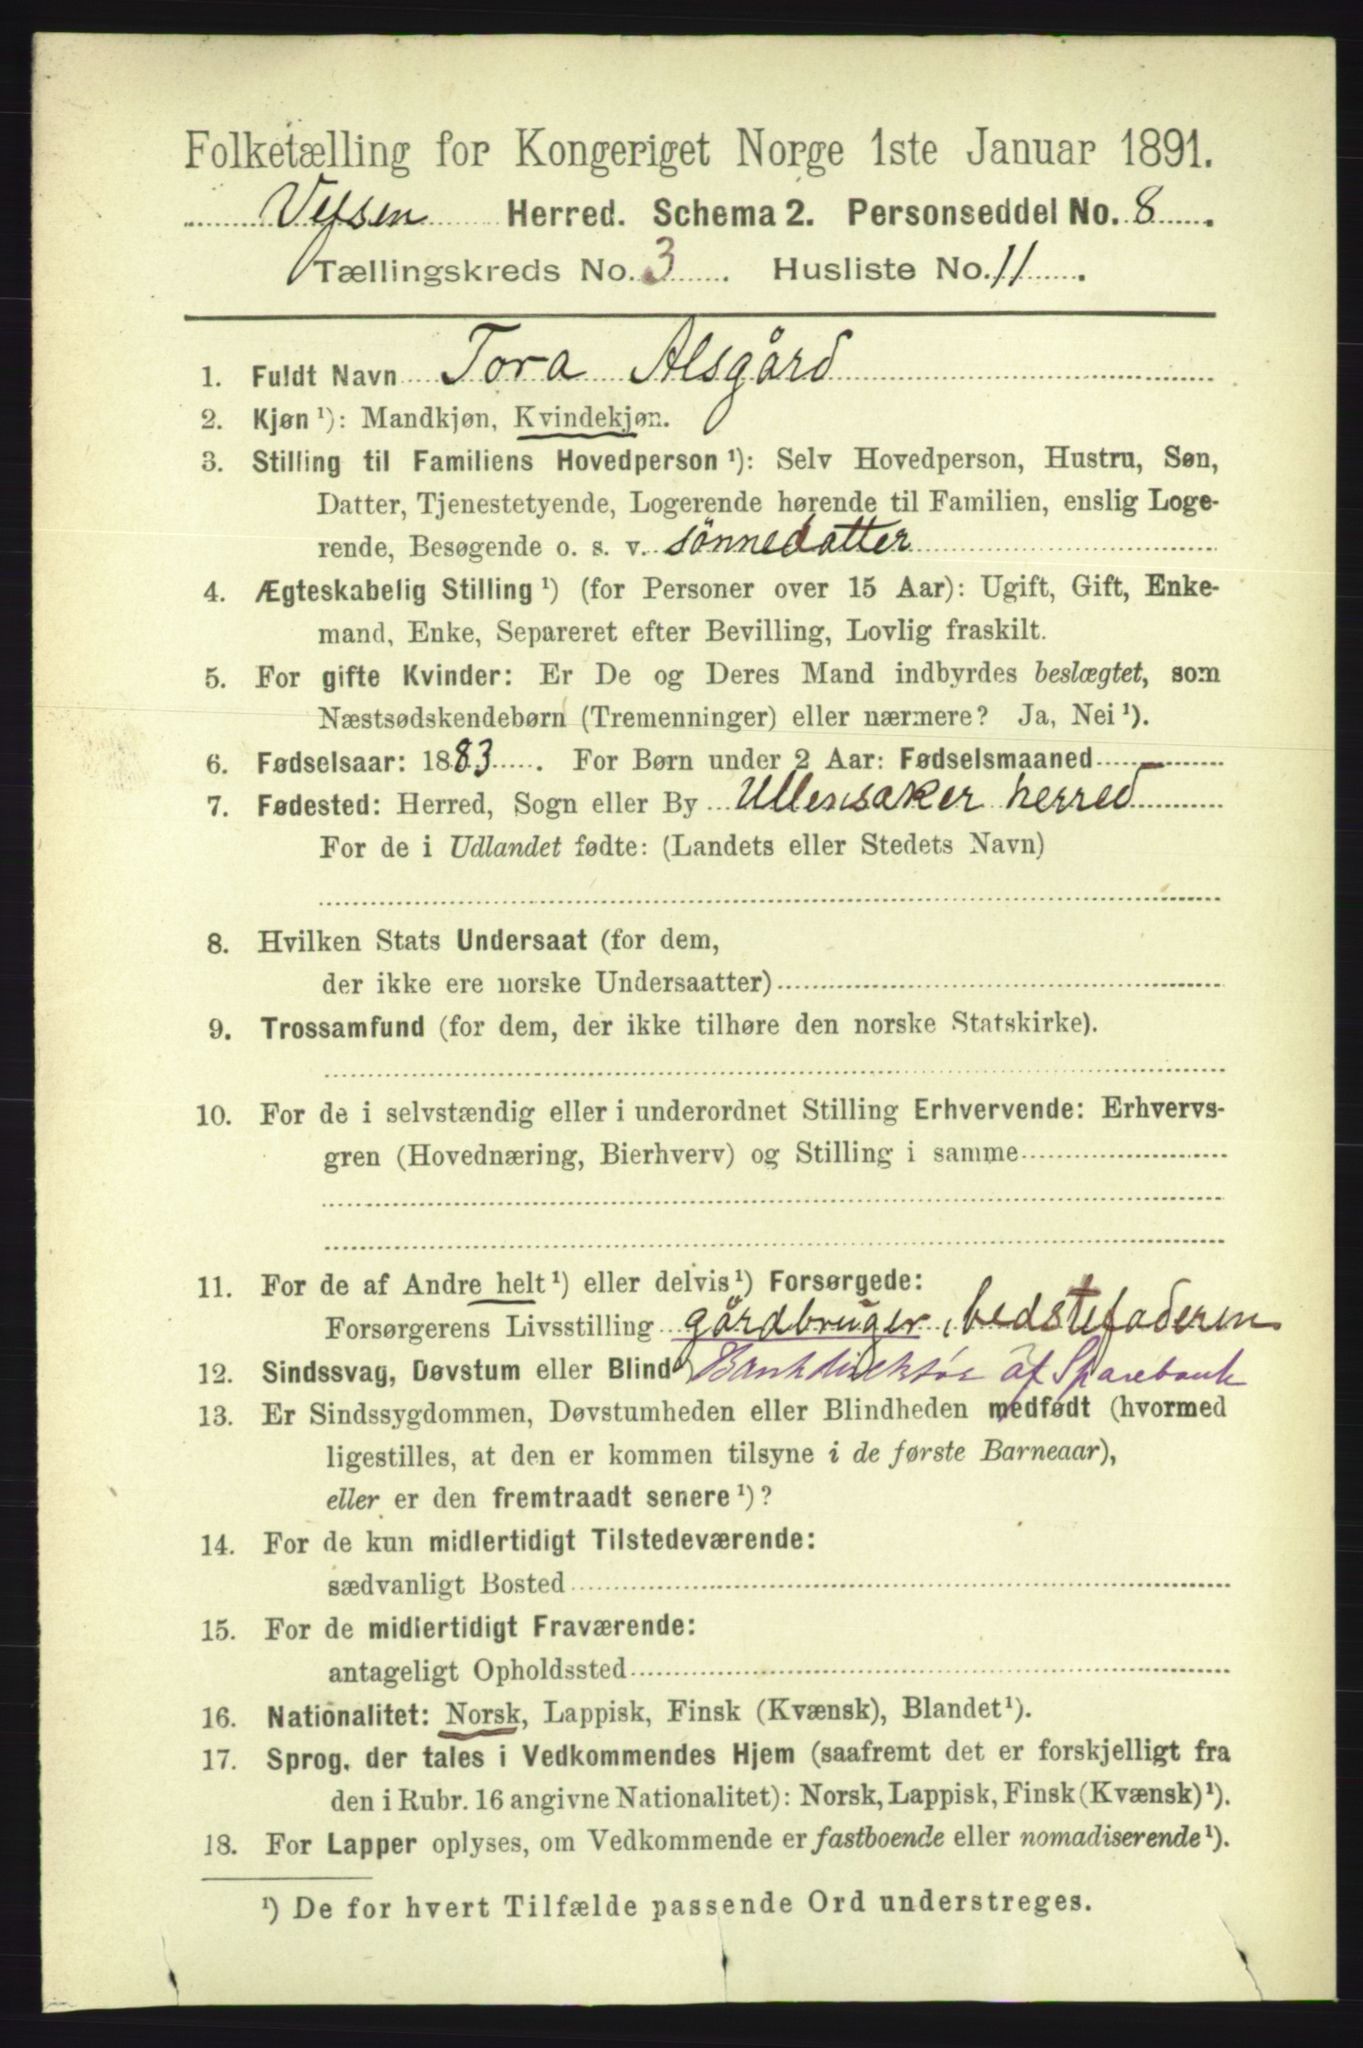 Folketælling for Kongeriget Norge 1ste Januar 1891.
Vefsen Herred. Schema 2. Personseddel No. 8.
Tællingskreds No. 3. Husliste No. 11.
1. Fuldt Navn Tora Alsgård
2. Kjøn ¹): Mandkjøn, Kvindekjøn.
3. Stilling til Familiens Hovedperson ¹): Selv Hovedperson, Hustru, Søn,
Datter, Tjenestetyende, Logerende hørende til Familien, enslig Loge-
rende, Besøgende o. s. v. sönnedatter
4. Ægteskabelig Stilling ¹) (for Personer over 15 Aar): Ugift, Gift, Enke-
mand, Enke, Separeret efter Bevilling, Lovlig fraskilt.
5. For gifte Kvinder: Er De og Deres Mand indbyrdes beslægtet, som
Næstsødskendebørn (Tremenninger) eller nærmere? Ja, Nei ¹).
6. Fødselsaar: 1883. For Børn under 2 Aar: Fødselsmaaned
7. Fødested: Herred, Sogn eller By Ullensaker herred
For de i Udlandet fødte: (Landets eller Stedets Navn)
8. Hvilken Stats Undersaat (for dem,
der ikke ere norske Undersaatter)
9. Trossamfund (for dem, der ikke tilhøre den norske Statskirke).
10. For de i selvstændig eller i underordnet Stilling Erhvervende: Erhvervs-
gren (Hovednæring, Bierhverv) og Stilling i samme
11. For de af Andre helt ¹) eller delvis ¹) Forsørgede:
Forsørgerens Livsstilling gårdbruger, bedstefaderen
12. Sindssvag, Døvstum eller Blind Bankdirektör af Sparebank
13. Er Sindssygdommen, Døvstumheden eller Blindheden medfødt (hvormed
ligestilles, at den er kommen tilsyne i de første Barneaar),
eller er den fremtraadt senere ¹)?
14. For de kun midlertidigt Tilstedeværende:
sædvanligt Bosted
15. For de midlertidigt Fraværende:
antageligt Opholdssted
16. Nationalitet: Norsk, Lappisk, Finsk (Kvænsk), Blandet ¹).
17. Sprog, der tales i Vedkommendes Hjem (saafremt det er forskjelligt fra
den i Rubr. 16 angivne Nationalitet): Norsk, Lappisk, Finsk (Kvænsk) ¹).
18. For Lapper oplyses, om Vedkommende er fastboende eller nomadiserende ¹).
¹) De for hvert Tilfælde passende Ord understreges.